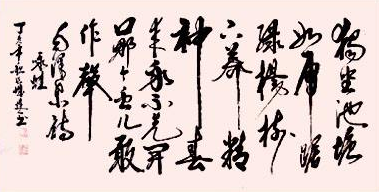 獨坐池塘
如虎踞
绿楊树
下养精
神春
来我不先开
口那个虫儿敢
作聲
咏蛙
毛澤东詩
丁亥年秋